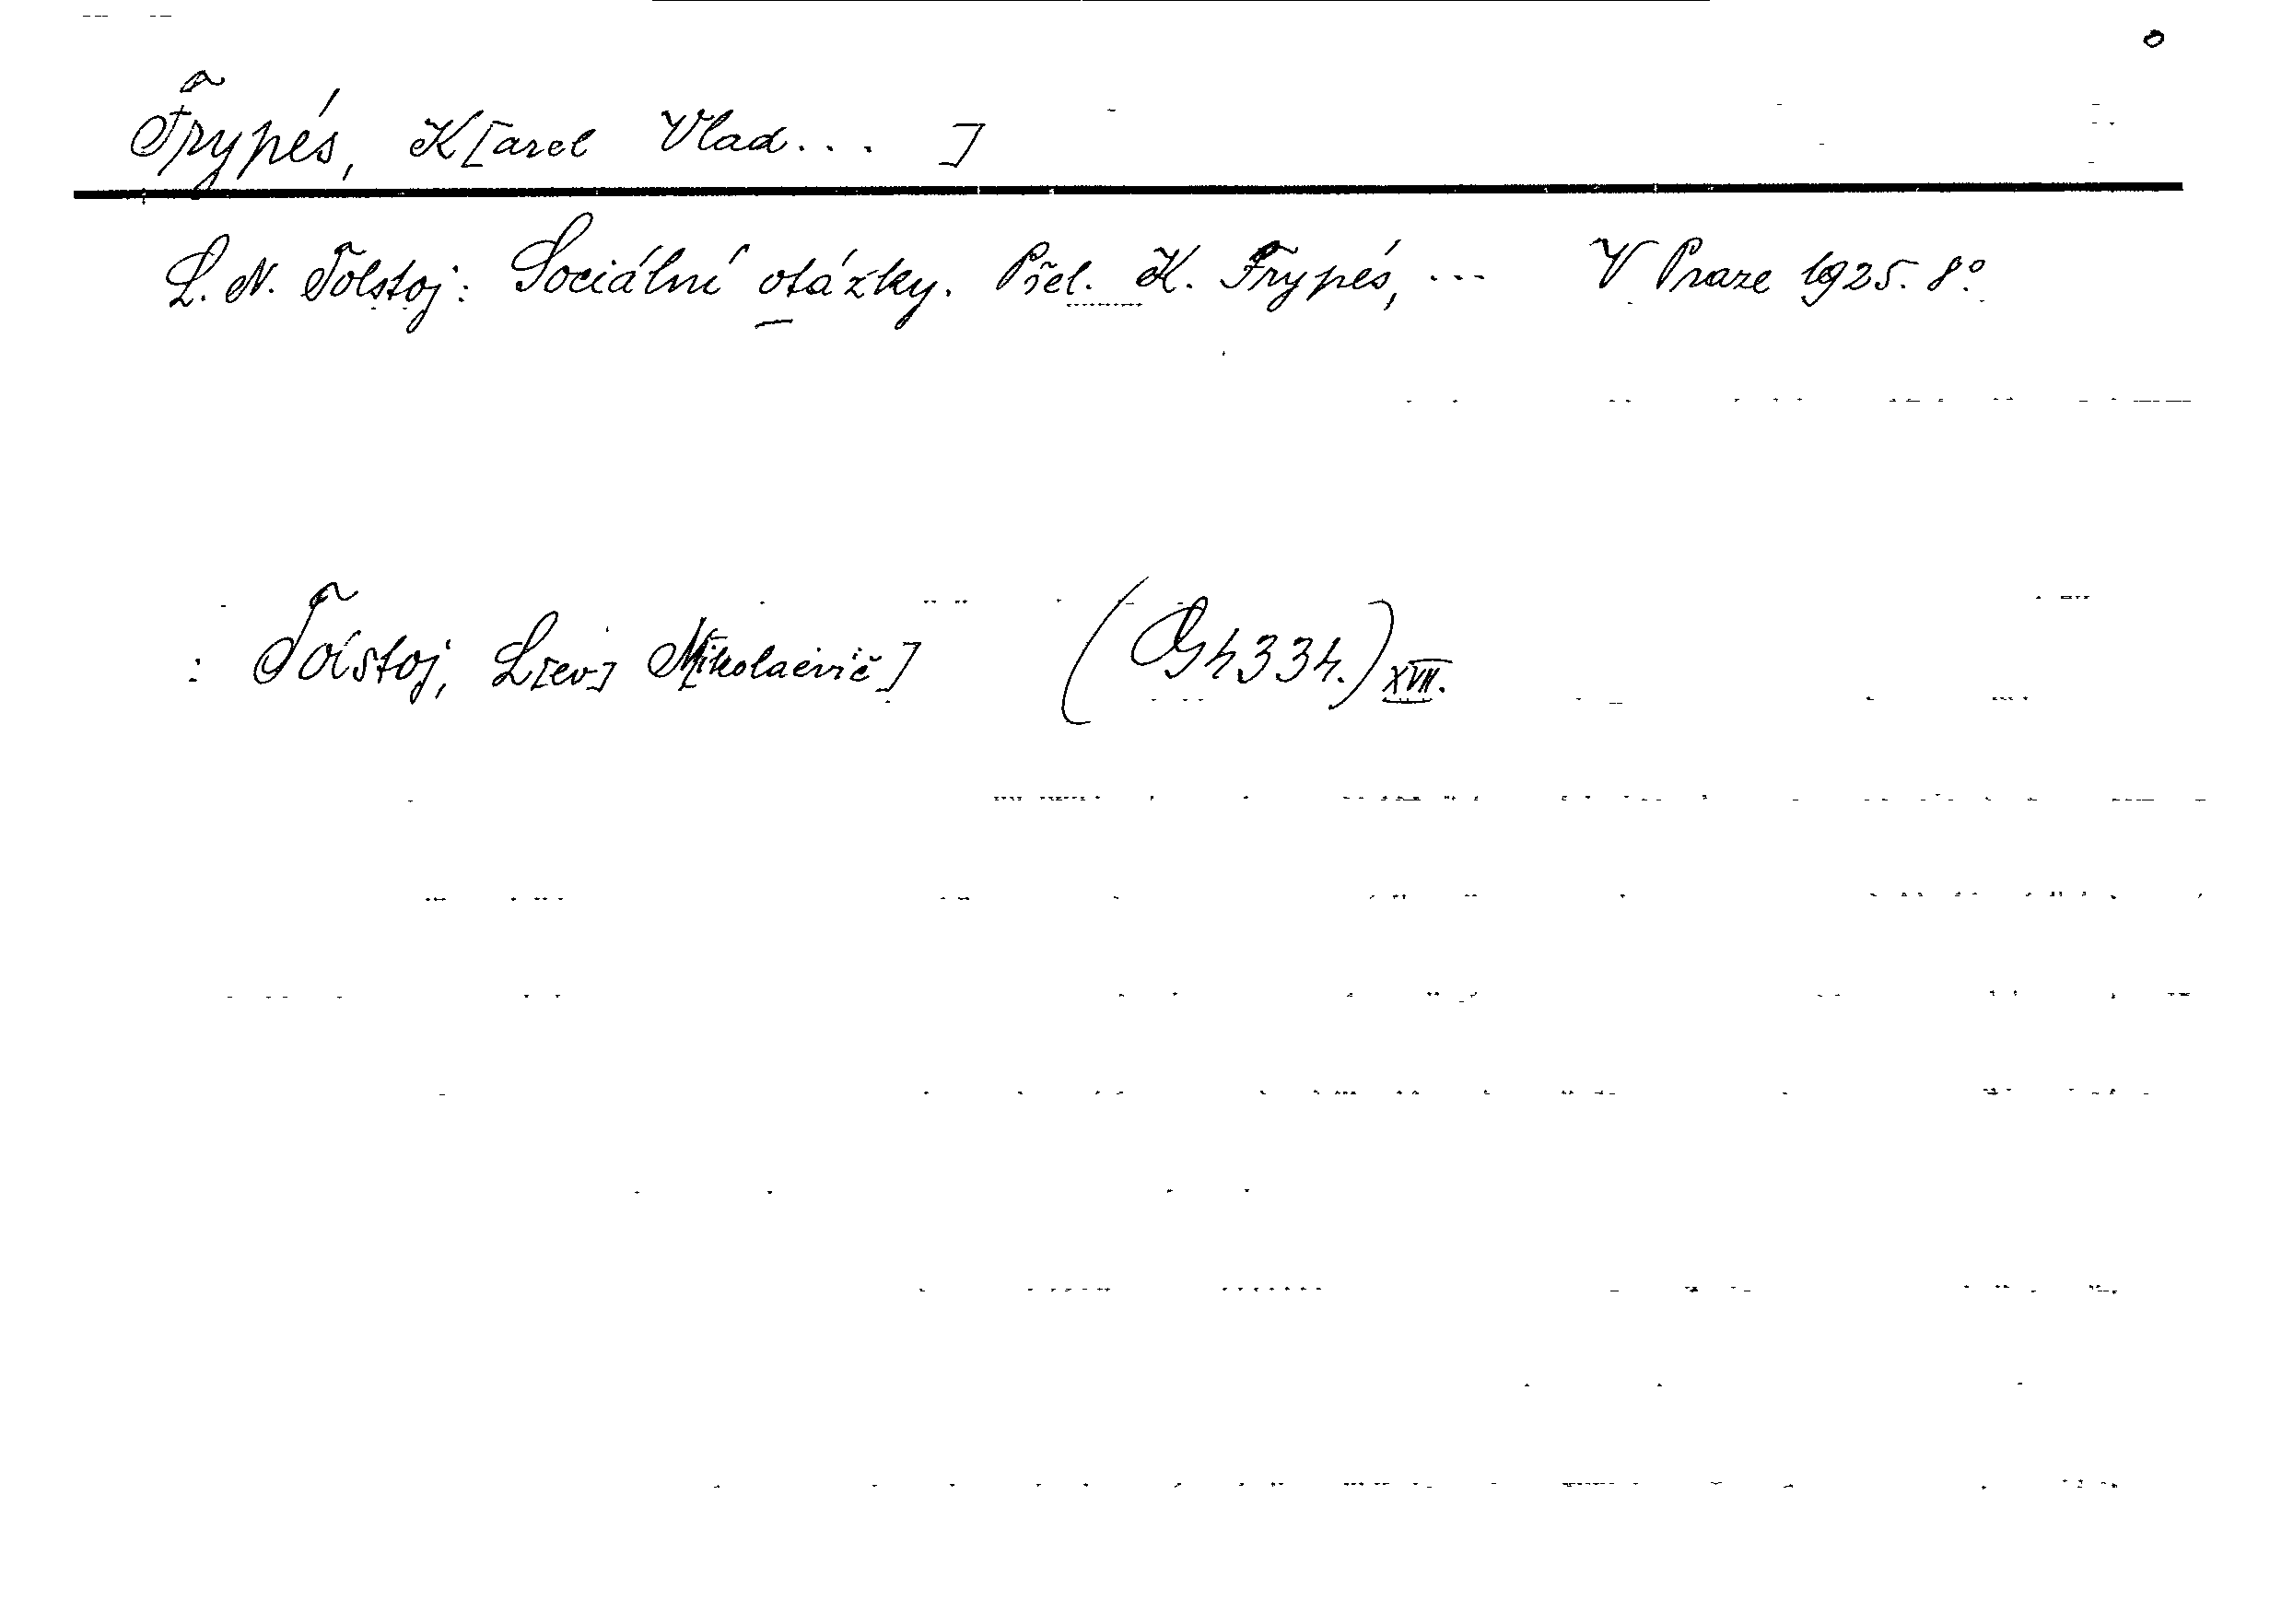 Frypés, K[arel Vlad... ]
L. N. Tolstoj: Sociální otázky. Přel. K. Frypés, ... V Praze 1925. 8°.
: Tolstoj, L[ev] N[ikolaevič] (Gh334.) XVII.